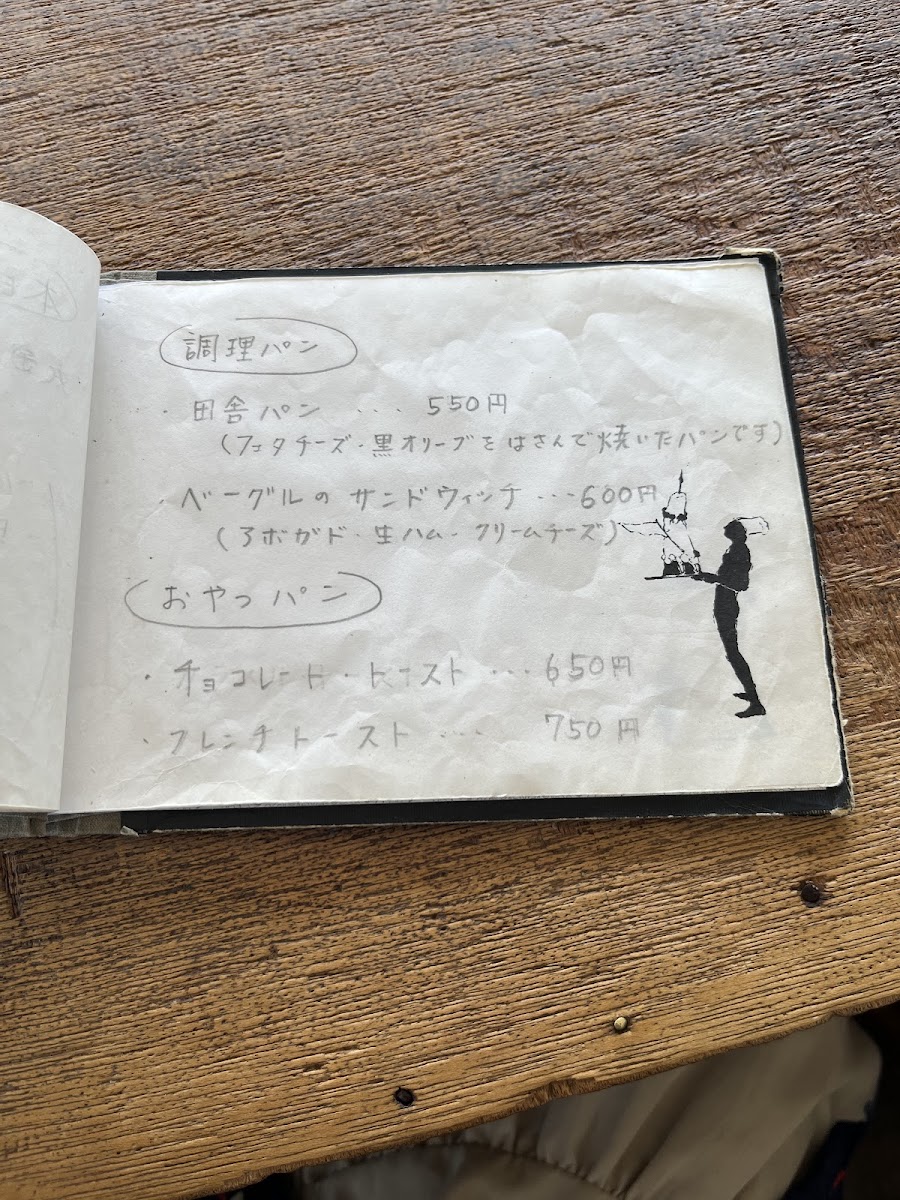 調理パン
・田舎パン ・・・・ 550円
(フェタチーズ・黒オリーブをはさんで焼いたパンです)
・ベーグルの サンドウィッチ ・・・600円
(アボガド・生ハム・クリームチーズ)
おやつパン
・チョコレート・トースト ・・・650円
・フレンチトースト ・・・・ 750円